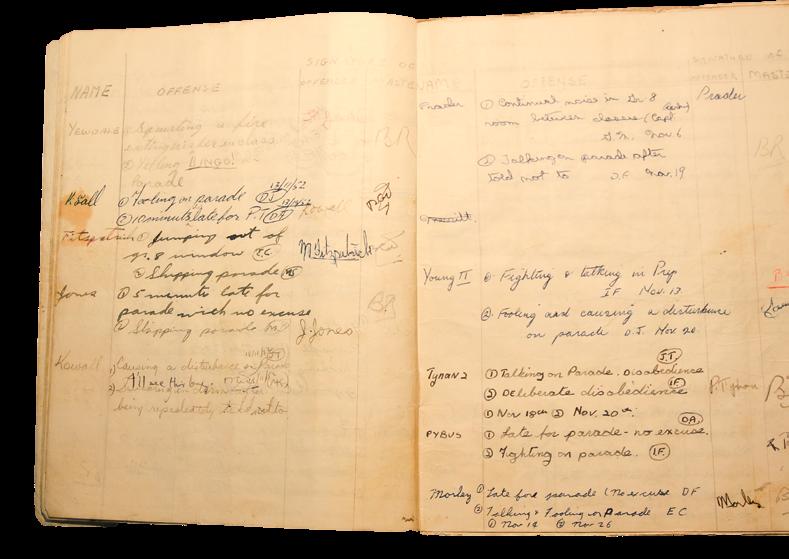 SIGNATURE OF
NAME OFFENSE OFFENDER MASTER
① Squirting a fire
extinguisher in class.
② Yelling BINGO!
Parade
13/11/52
① Fooling on parade D.J.
② 10 minutes late for P.T. D.A. Kowall
Fitzpatrick ① Jumping out of
gr. 8 window I.C. M Fitzpatrick
② Skipping parade
Jones ① 5 minute late for BR
parade with no excuse
② Skipping parade J. Jones
Kowall Causing a disturbance on Parade J.T.
being repeatedly told not to
NAME OFFENSE SIGNATURE OF
OFFENDER MASTER
Prader ① Continual noise in Gr. 8 Prader
room between classes (Capt.
Nov 6
② Talking on parade after BR
told not to D.F. Nov. 19
Young II ① Fighting & talking in Prep
IF Nov. 13.
② Fooling and causing a disturbance
on parade D.J. Nov 20
J.T.
Tynan 2 ① Talking on Parade. Disobedience
② Deliberate disobedience I.F. P. Tynan
① Nov 18th ② Nov. 20th
D.A.
PYBUS ① Late for parade - no excuse.
② Fighting on parade. I.F.
Morley ① Late for parade (no excuse DF Morley
② Talking & Fooling on Parade EC
① Nov 19 ② Nov 26